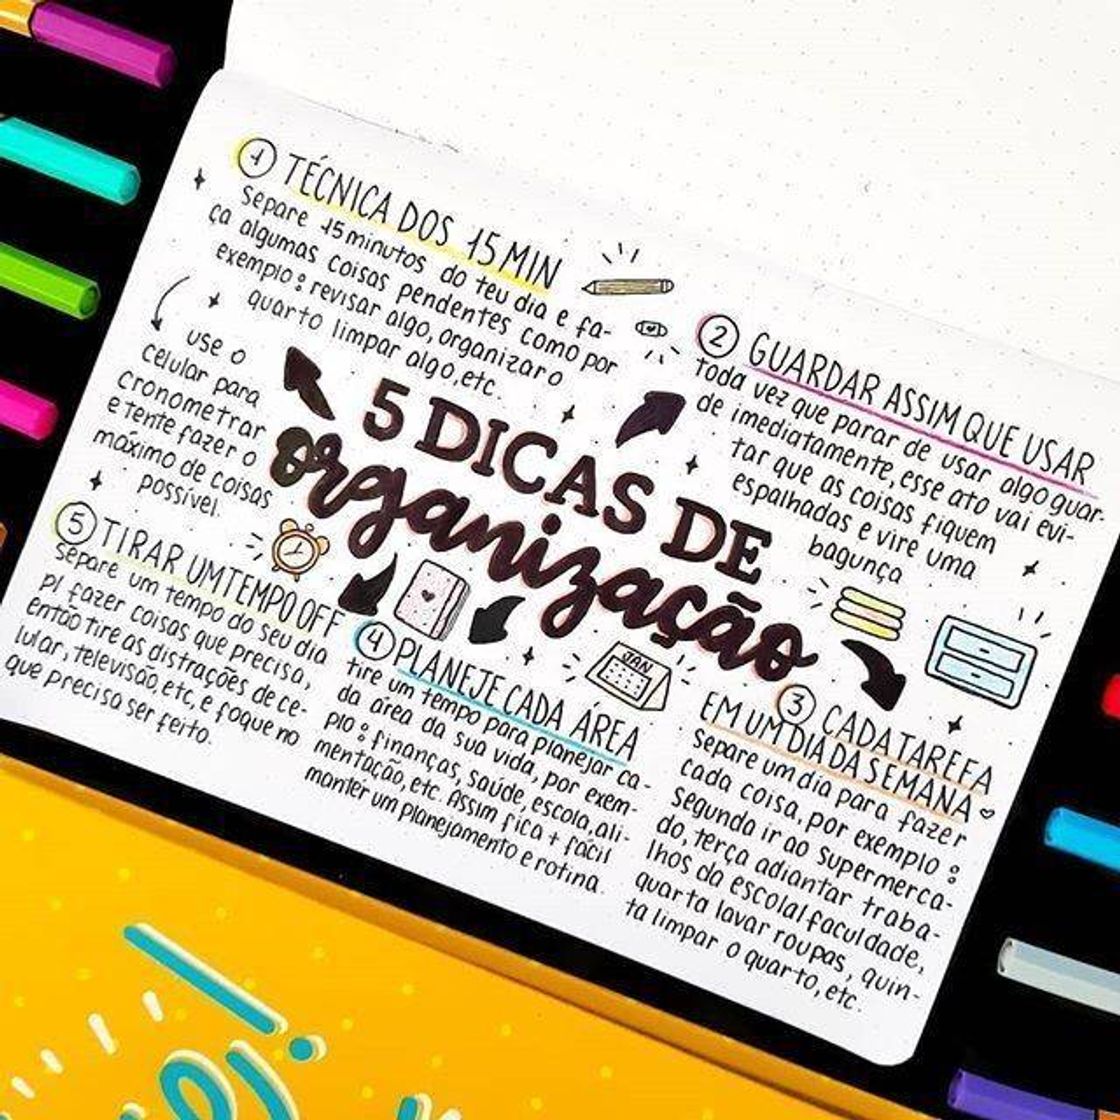 5 DICAS DE
organização
1 TÉCNICA DOS 15 MIN
Separe 15 minutos do teu dia e fa-
ça algumas coisas pendentes como por
exemplo: revisar algo, organizar o
quarto limpar algo, etc.
use o
celular para
cronometrar
e tente fazer o
máximo de coisas
possível.
2 GUARDAR ASSIM QUE USAR
toda vez que parar de usar algo guar-
de imediatamente, esse ato vai evi-
tar que as coisas fiquem
espalhadas e vire uma
bagunça
3 CADA TAREFA
EM UM DIA DA SEMANA
Separe um dia para fazer
cada coisa, por exemplo:
segunda ir ao supermerca-
do, terça adiantar traba-
lhos da escola/faculdade,
quarta lavar roupas, quin-
ta limpar o quarto, etc.
4 PLANEJE CADA ÁREA
tire um tempo para planejar ca-
da área da sua vida, por exem-
plo: finanças, saúde, escola, ali-
mentação, etc. Assim fica + fácil
manter um planejamento e rotina.
JAN
5 TIRAR UM TEMPO OFF
separe um tempo do seu dia
p/ fazer coisas que precisa,
então tire as distrações de ce-
lular, televisão, etc, e foque no
que precisa ser feito.